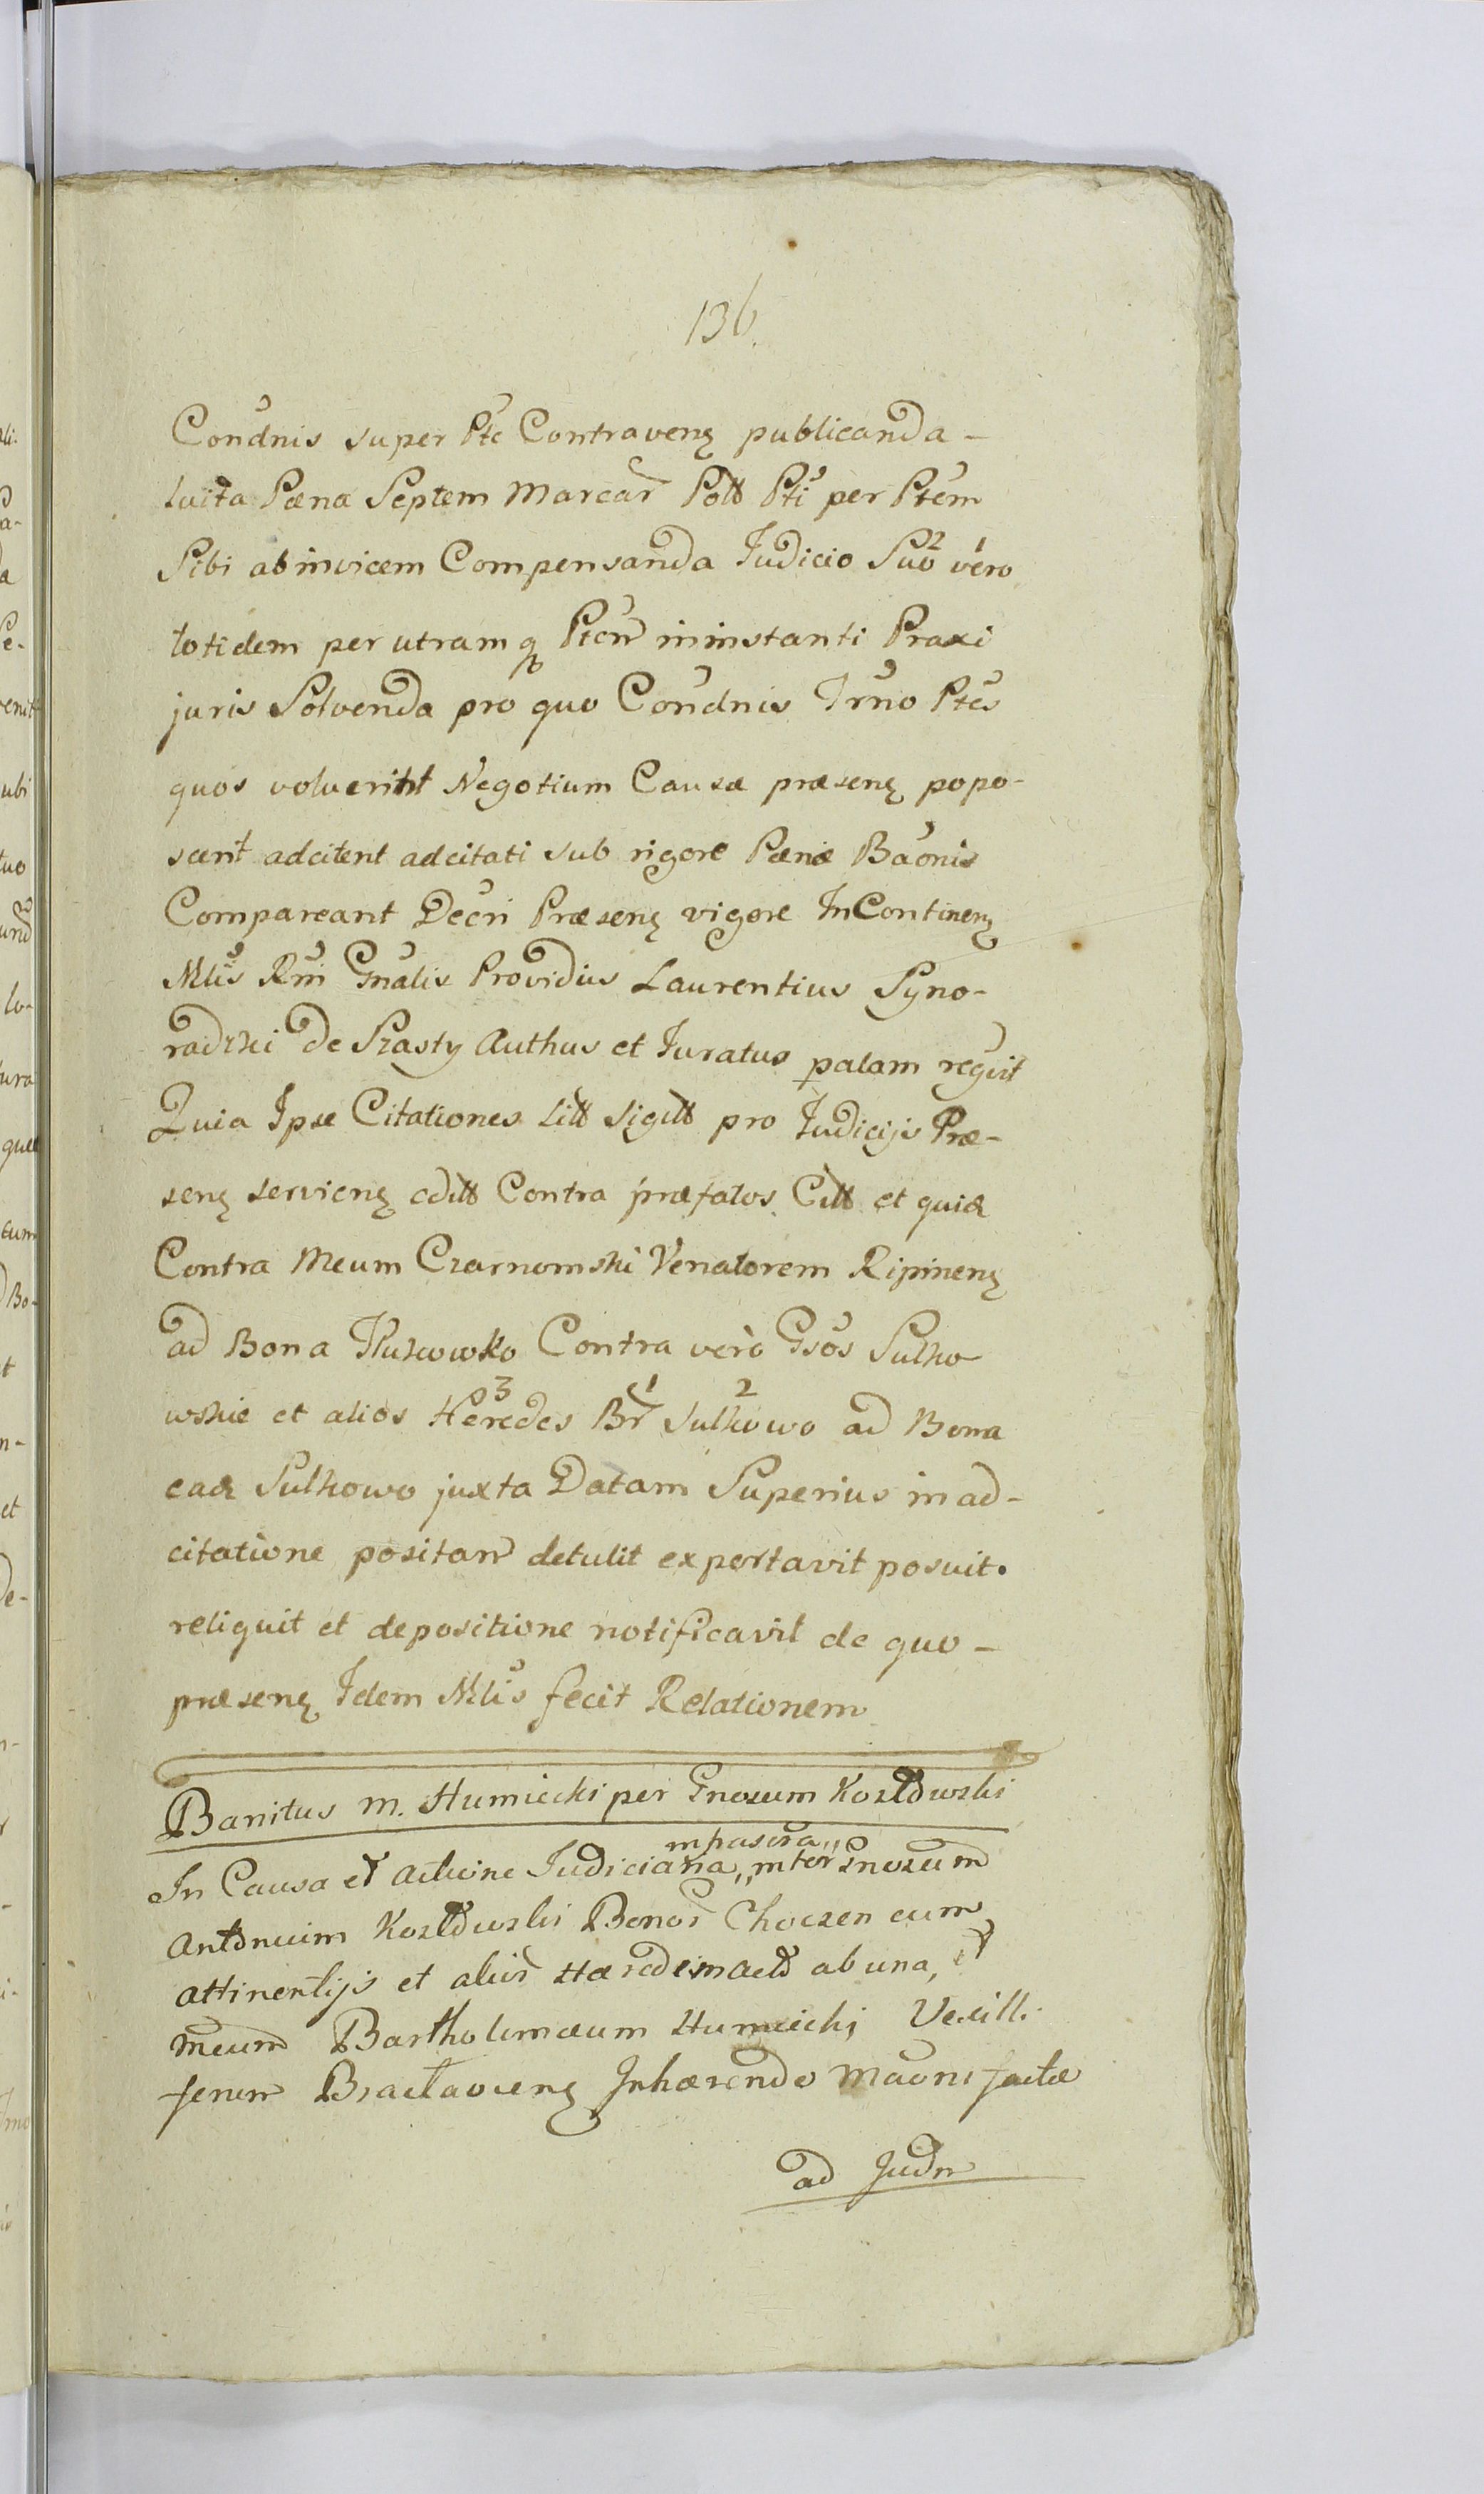 136.
Condnis super Ptc Contraveng publicanda –
luita Pæna Septem Marcar Poll Pti per Ptem
Sibi abinvicem Compensanda Judicio Suo vero
totidem per utramq Ptem ininstanti Praxi
juris Solvenda pro quo Condnis Trno Ptes
quos voluerint Negotium Causæ præseng popo-
scent adcitent adcitati sub rigore Pænæ Baonis
Compareant Decri Præseng vigore InContineng
Mlis Rni Gnalis Providus Laurentius Syno-
radzki de Szasty Authus et Juratus palam regvit
Quia Ipse Citationes Litt Sigill pro Judicijs Præ-
seng servieng edill Contra præfatos Citt et quid
Contra Meum Czarnomski Venatorem Ripineng
ad Bona Contra verò Gsos Sulko
wskie et alios Heredes Br Sulkowo ad Bona
ead Sulkowo juxta Datam Superius in ad-
citatione positam detulit exportavit posuit.
reliquit et depositione notificavit de quo –
præseng Idem Mlis fecit Relationem
Banitus M. Humiecki per Gnosum Kozłdwski
In Causa et Actione Judiciaria,, inter Gnosum
Antonium Kozłdwski Bonor Choczen cum
attinentijs et alior Hæredem ab una, et
Meum Bartholomæum Humiecki Vexill.
ferum Bractavieng Inhærendo Maoni factæ
ad Judm